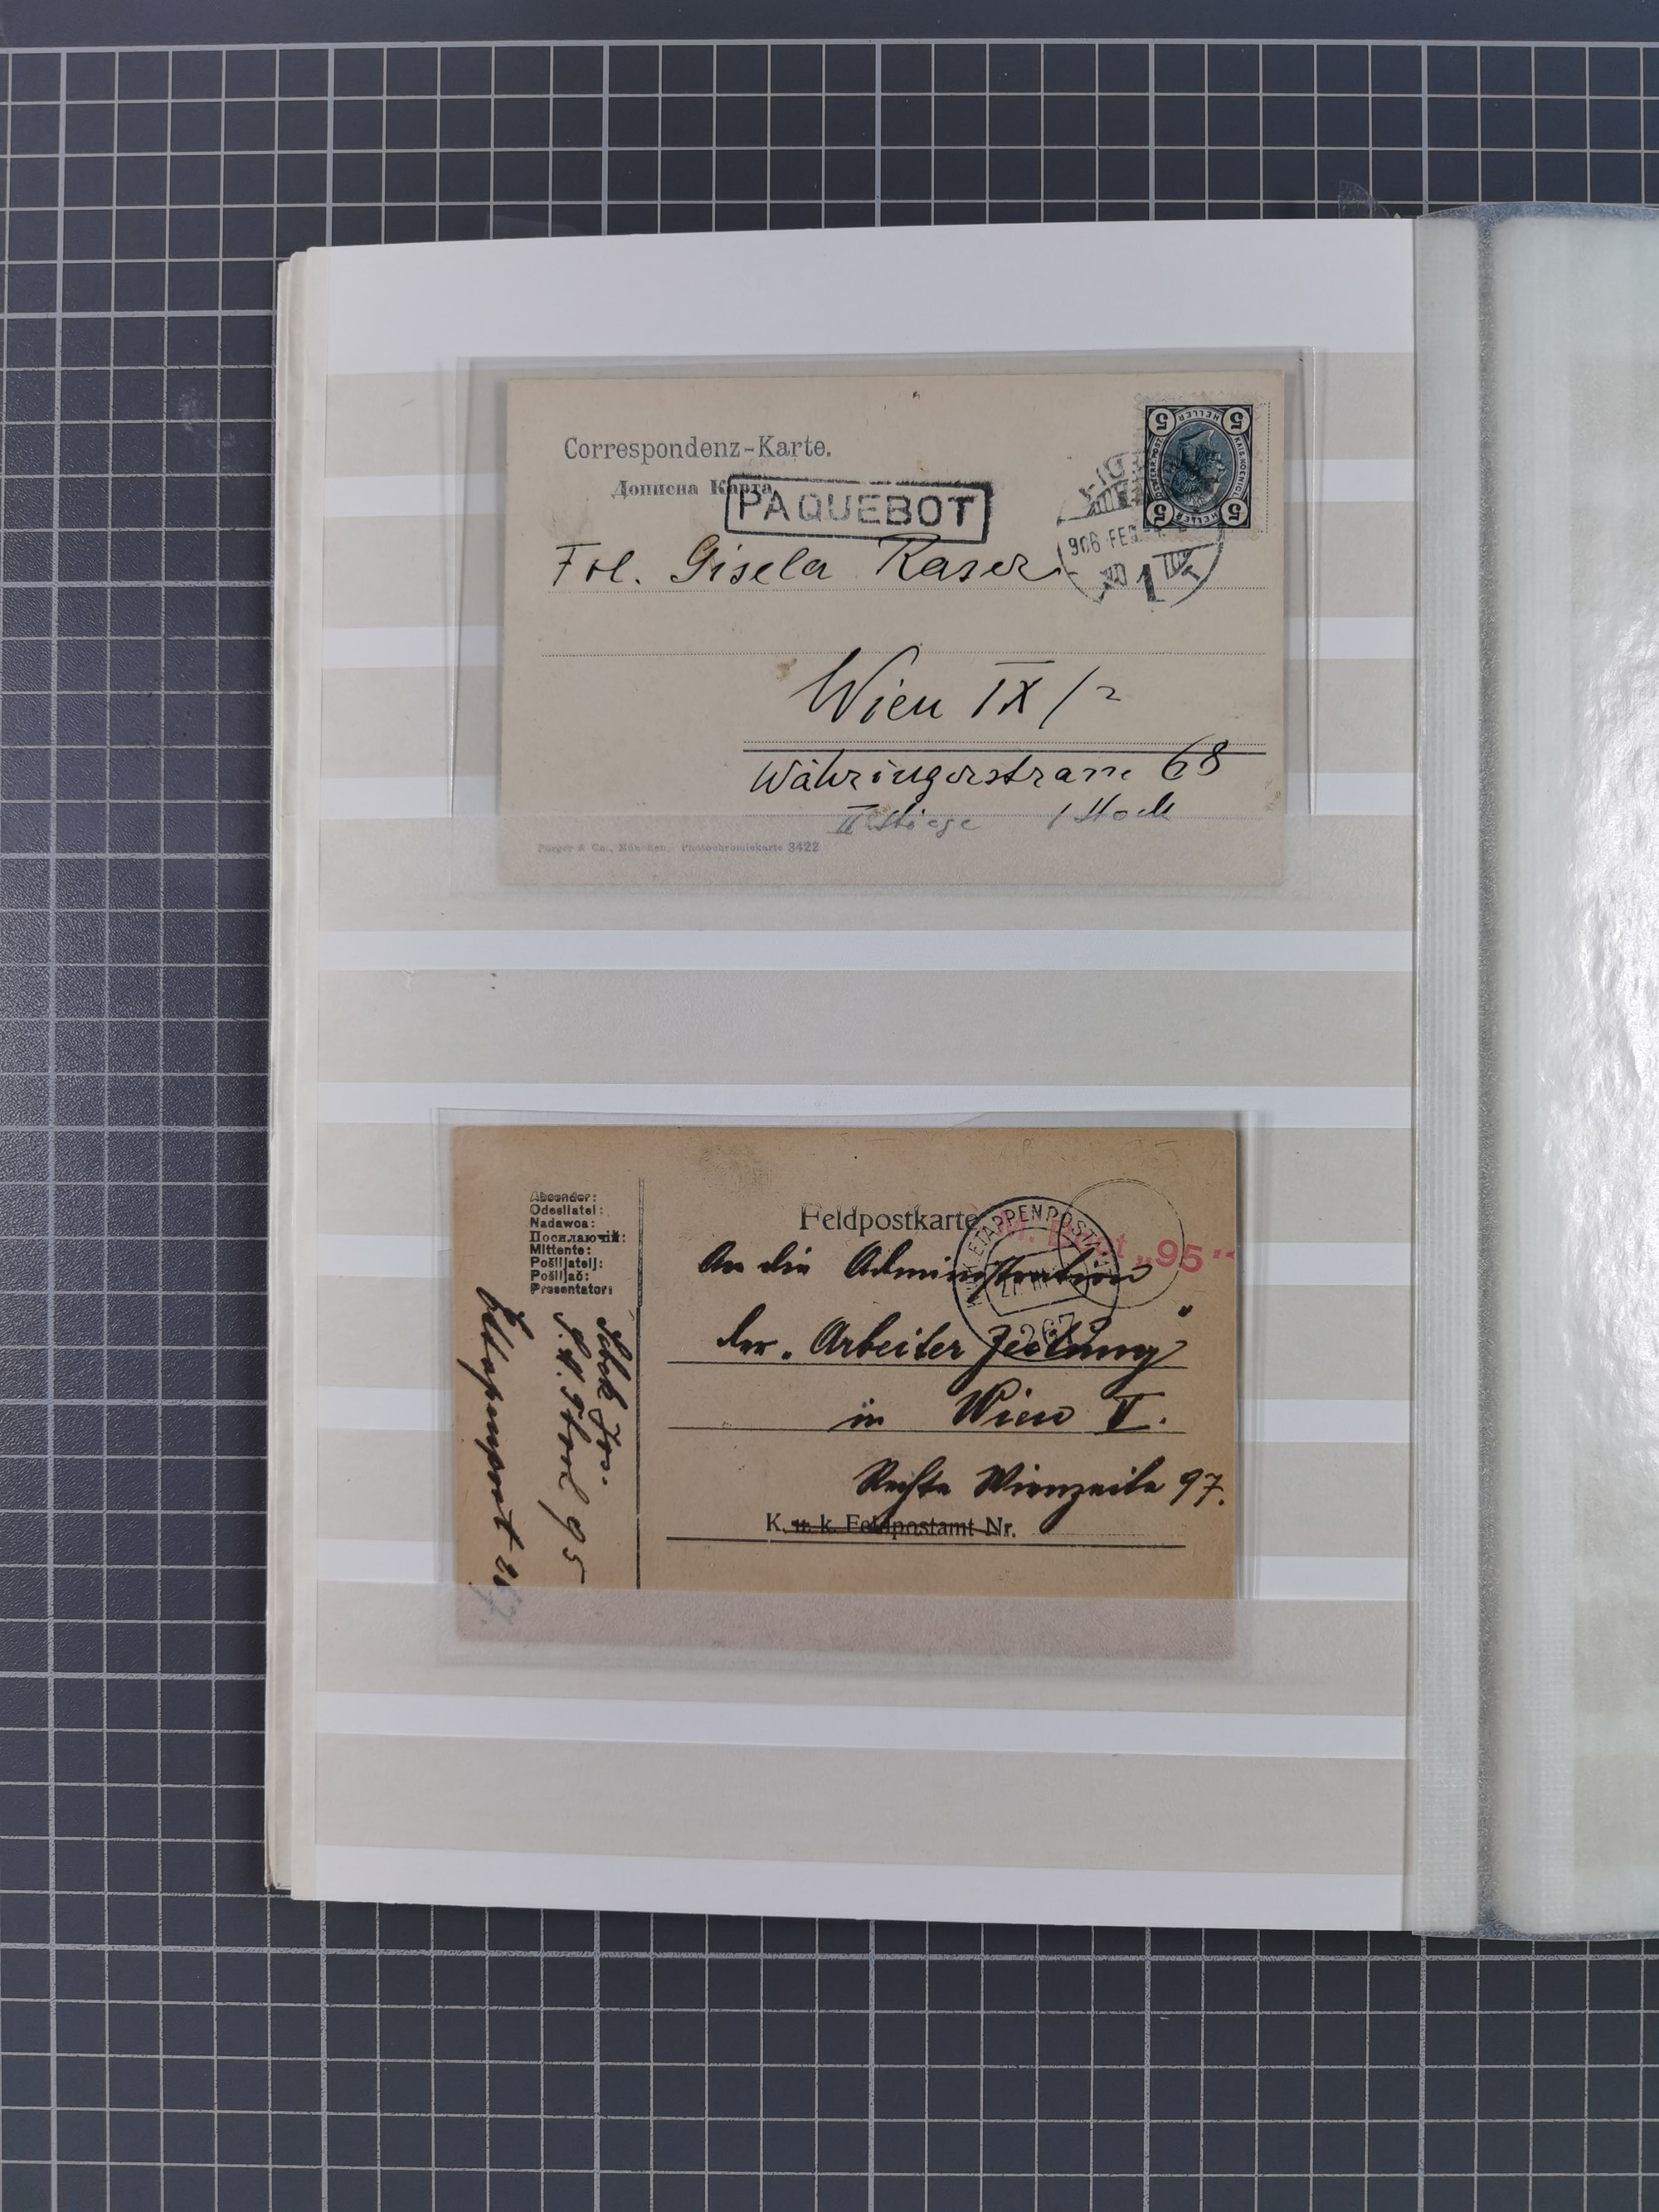 Correspondenz-Karte.
Дописна Карта
PAQUEBOT
5 HELLER 5
KAIS. KOENIGL.
OESTERR. POST
5 HELLER 5
906 FEB
1
Frl. Gisela Kaser
Wien IX/2
Währingerstrasse 68
II Stiege 1 Stock
Purger & Co., München, Photochromiekarte 3422
Absender:
Odesílatel:
Nadawca:
Посилаючій:
Mittente:
Pošiljatelj:
Pošiljač:
Presentator:
Jos.
95
Etappenpost 267.
Feldpostkarte
ETAPPENPOST
267
"95"
An die Administration
der "Arbeiter Zeitung"
in Wien V.
Rechte Wienzeile 97.
K. u. k. Feldpostamt Nr.